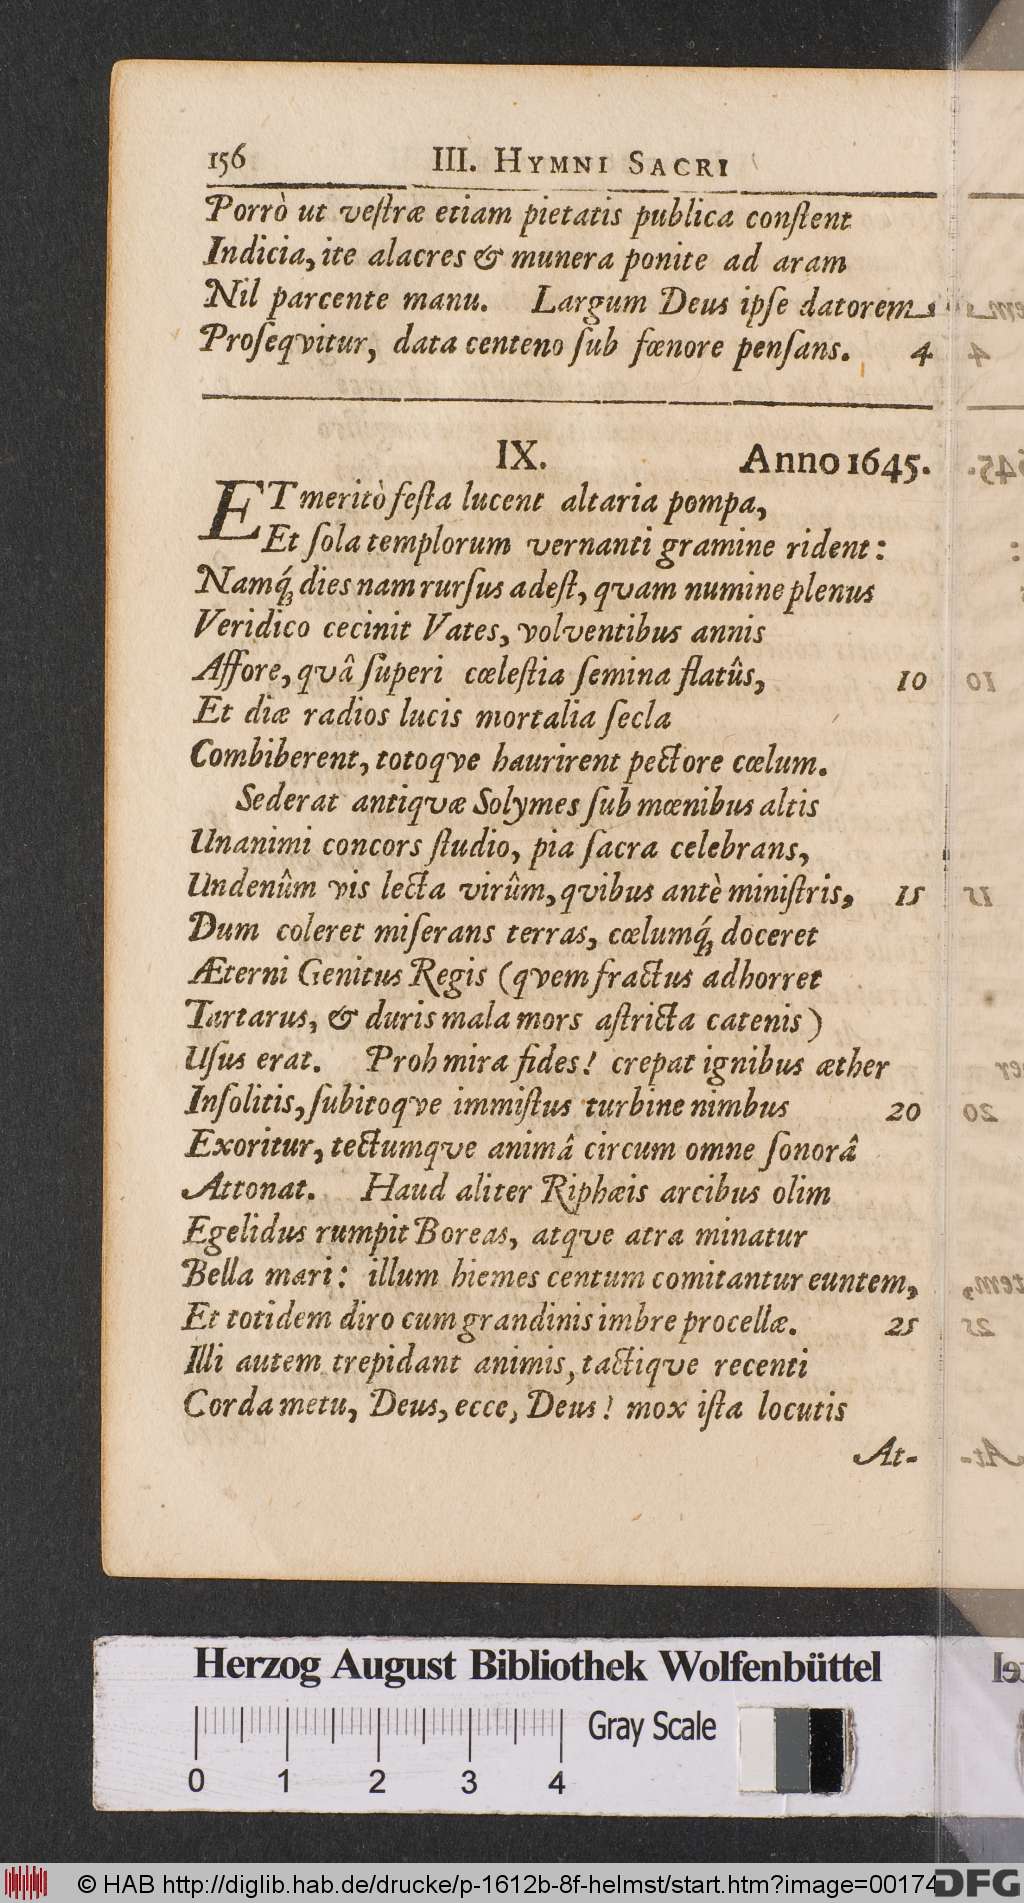 156 III. HYMNI SACRI
Porrò ut veſtræ etiam pietatis publica conſtent
Indicia, ite alacres & munera ponite ad aram
Nil parcente manu. Largum Deus ipſe datorem
Proſeqvitur, data centeno ſub fœnore penſans. 4
IX. Anno 1645.
ET meritò feſta lucent altaria pompa,
Et ſola templorum vernanti gramine rident:
Namq́ꝫ dies nam rurſus adeſt, qvam numine plenus
Veridico cecinit Vates, volventibus annis
Affore, qvâ ſuperi cœleſtia ſemina flatûs, 10
Et diæ radios lucis mortalia ſecla
Combiberent, totoqve haurirent pectore cœlum.
Sederat antiqvæ Solymes ſub mœnibus altis
Unanimi concors ſtudio, pia ſacra celebrans,
Undenûm vis lecta virûm, qvibus antè miniſtris, 15
Dum coleret miſerans terras, cœlumq́ꝫ doceret
Æterni Genitus Regis (qvem fractus adhorret
Tartarus, & duris mala mors aſtricta catenis)
Uſus erat. Proh mira fides! crepat ignibus æther
Inſolitis, ſubitoqve immiſtus turbine nimbus 20
Exoritur, tectumqve animâ circum omne ſonorâ
Attonat. Haud aliter Riphæis arcibus olim
Egelidus rumpit Boreas, atqve atra minatur
Bella mari: illum hiemes centum comitantur euntem,
Et totidem diro cum grandinis imbre procellæ. 25
Illi autem trepidant animis, tactiqve recenti
Corda metu, Deus, ecce, Deus! mox iſta locutis
At-
Herzog August Bibliothek Wolfenbüttel
Gray Scale
0 1 2 3 4
© HAB http://diglib.hab.de/drucke/p-1612b-8f-helmst/start.htm?image=00174
DFG